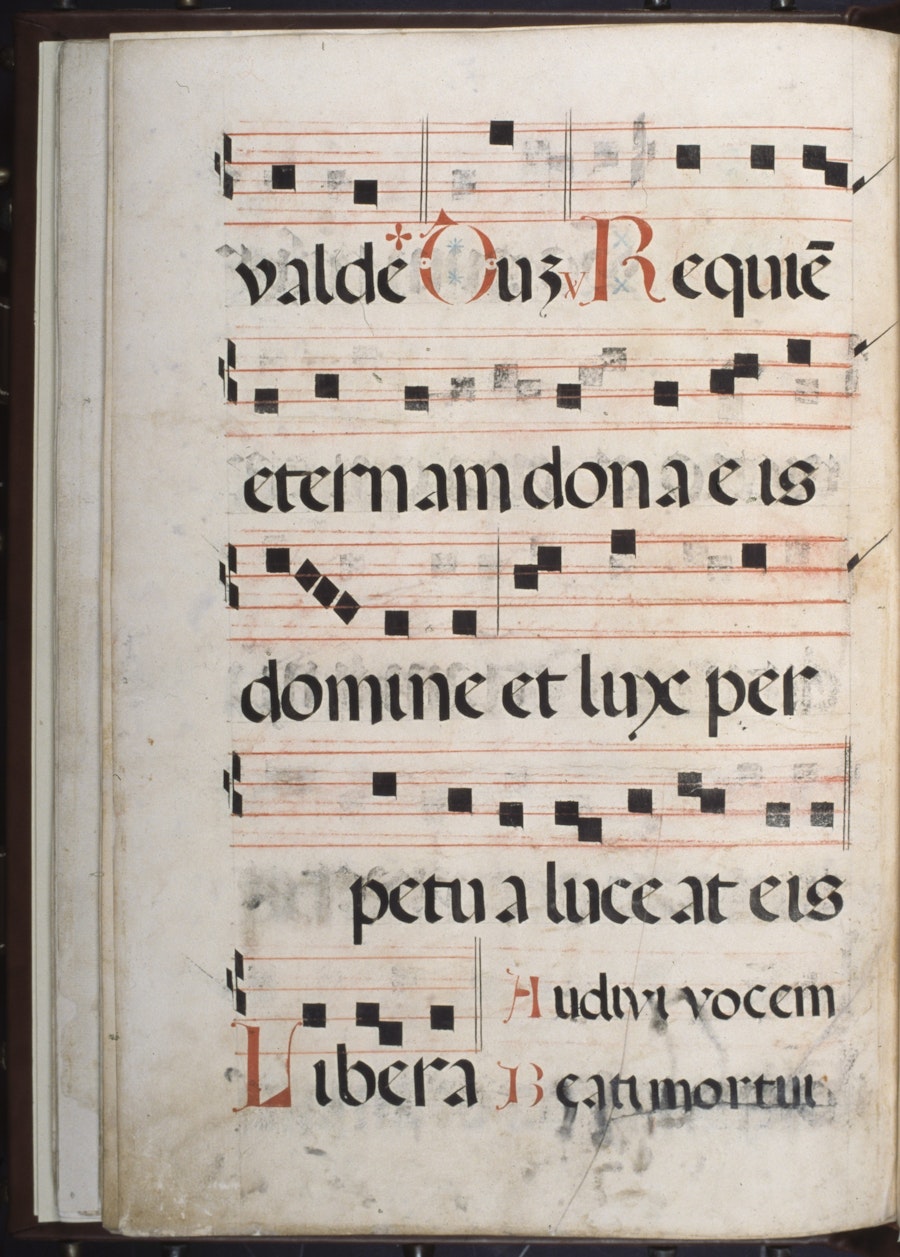 valde Quꝫ ℣ Requiē
eternam dona eis
domine et lux per
petua luceat eis
Libera Audivi vocem
Beati mortui